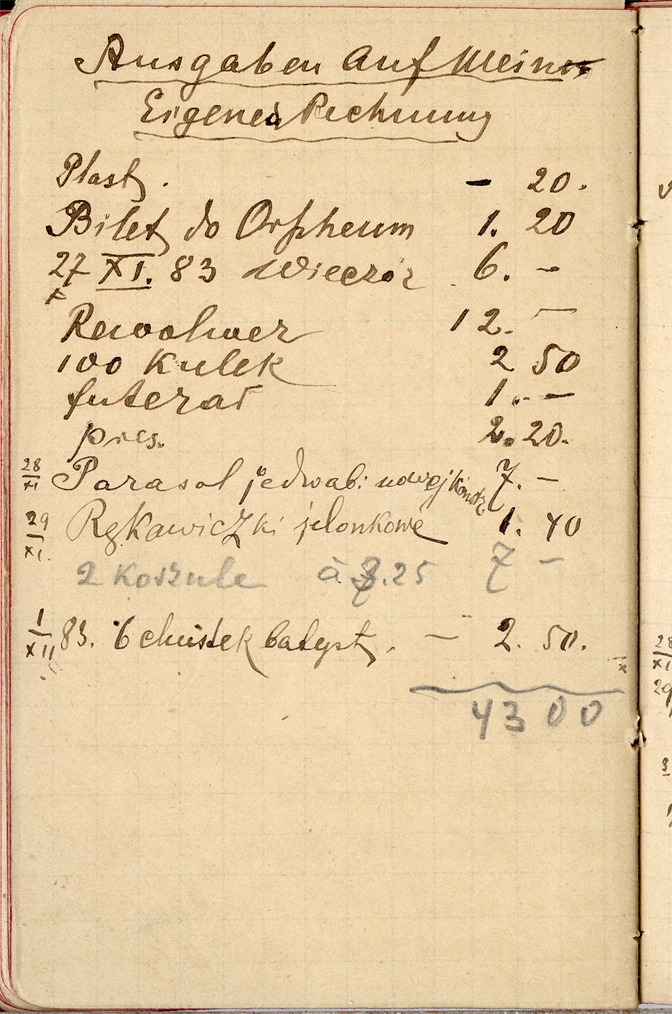 Ausgaben auf Meine
Eigene Rechnung
Plast. — 20.
Bilet do Orpheum 1. 20
27/X XI. 83 wieczór 6. —
Rewolwer 12. —
100 Kulek 2 50
futerał 1. —
pres. 2. 20.
28/XI Parasol jedwab: 7. —
29/XI. Rękawiczki jelonkowe 1. 40
2 Koszule à 3.25 7 —
1/XII 83. 6 chustek batyst. — 2. 50.
43 00
28/XI
29
3